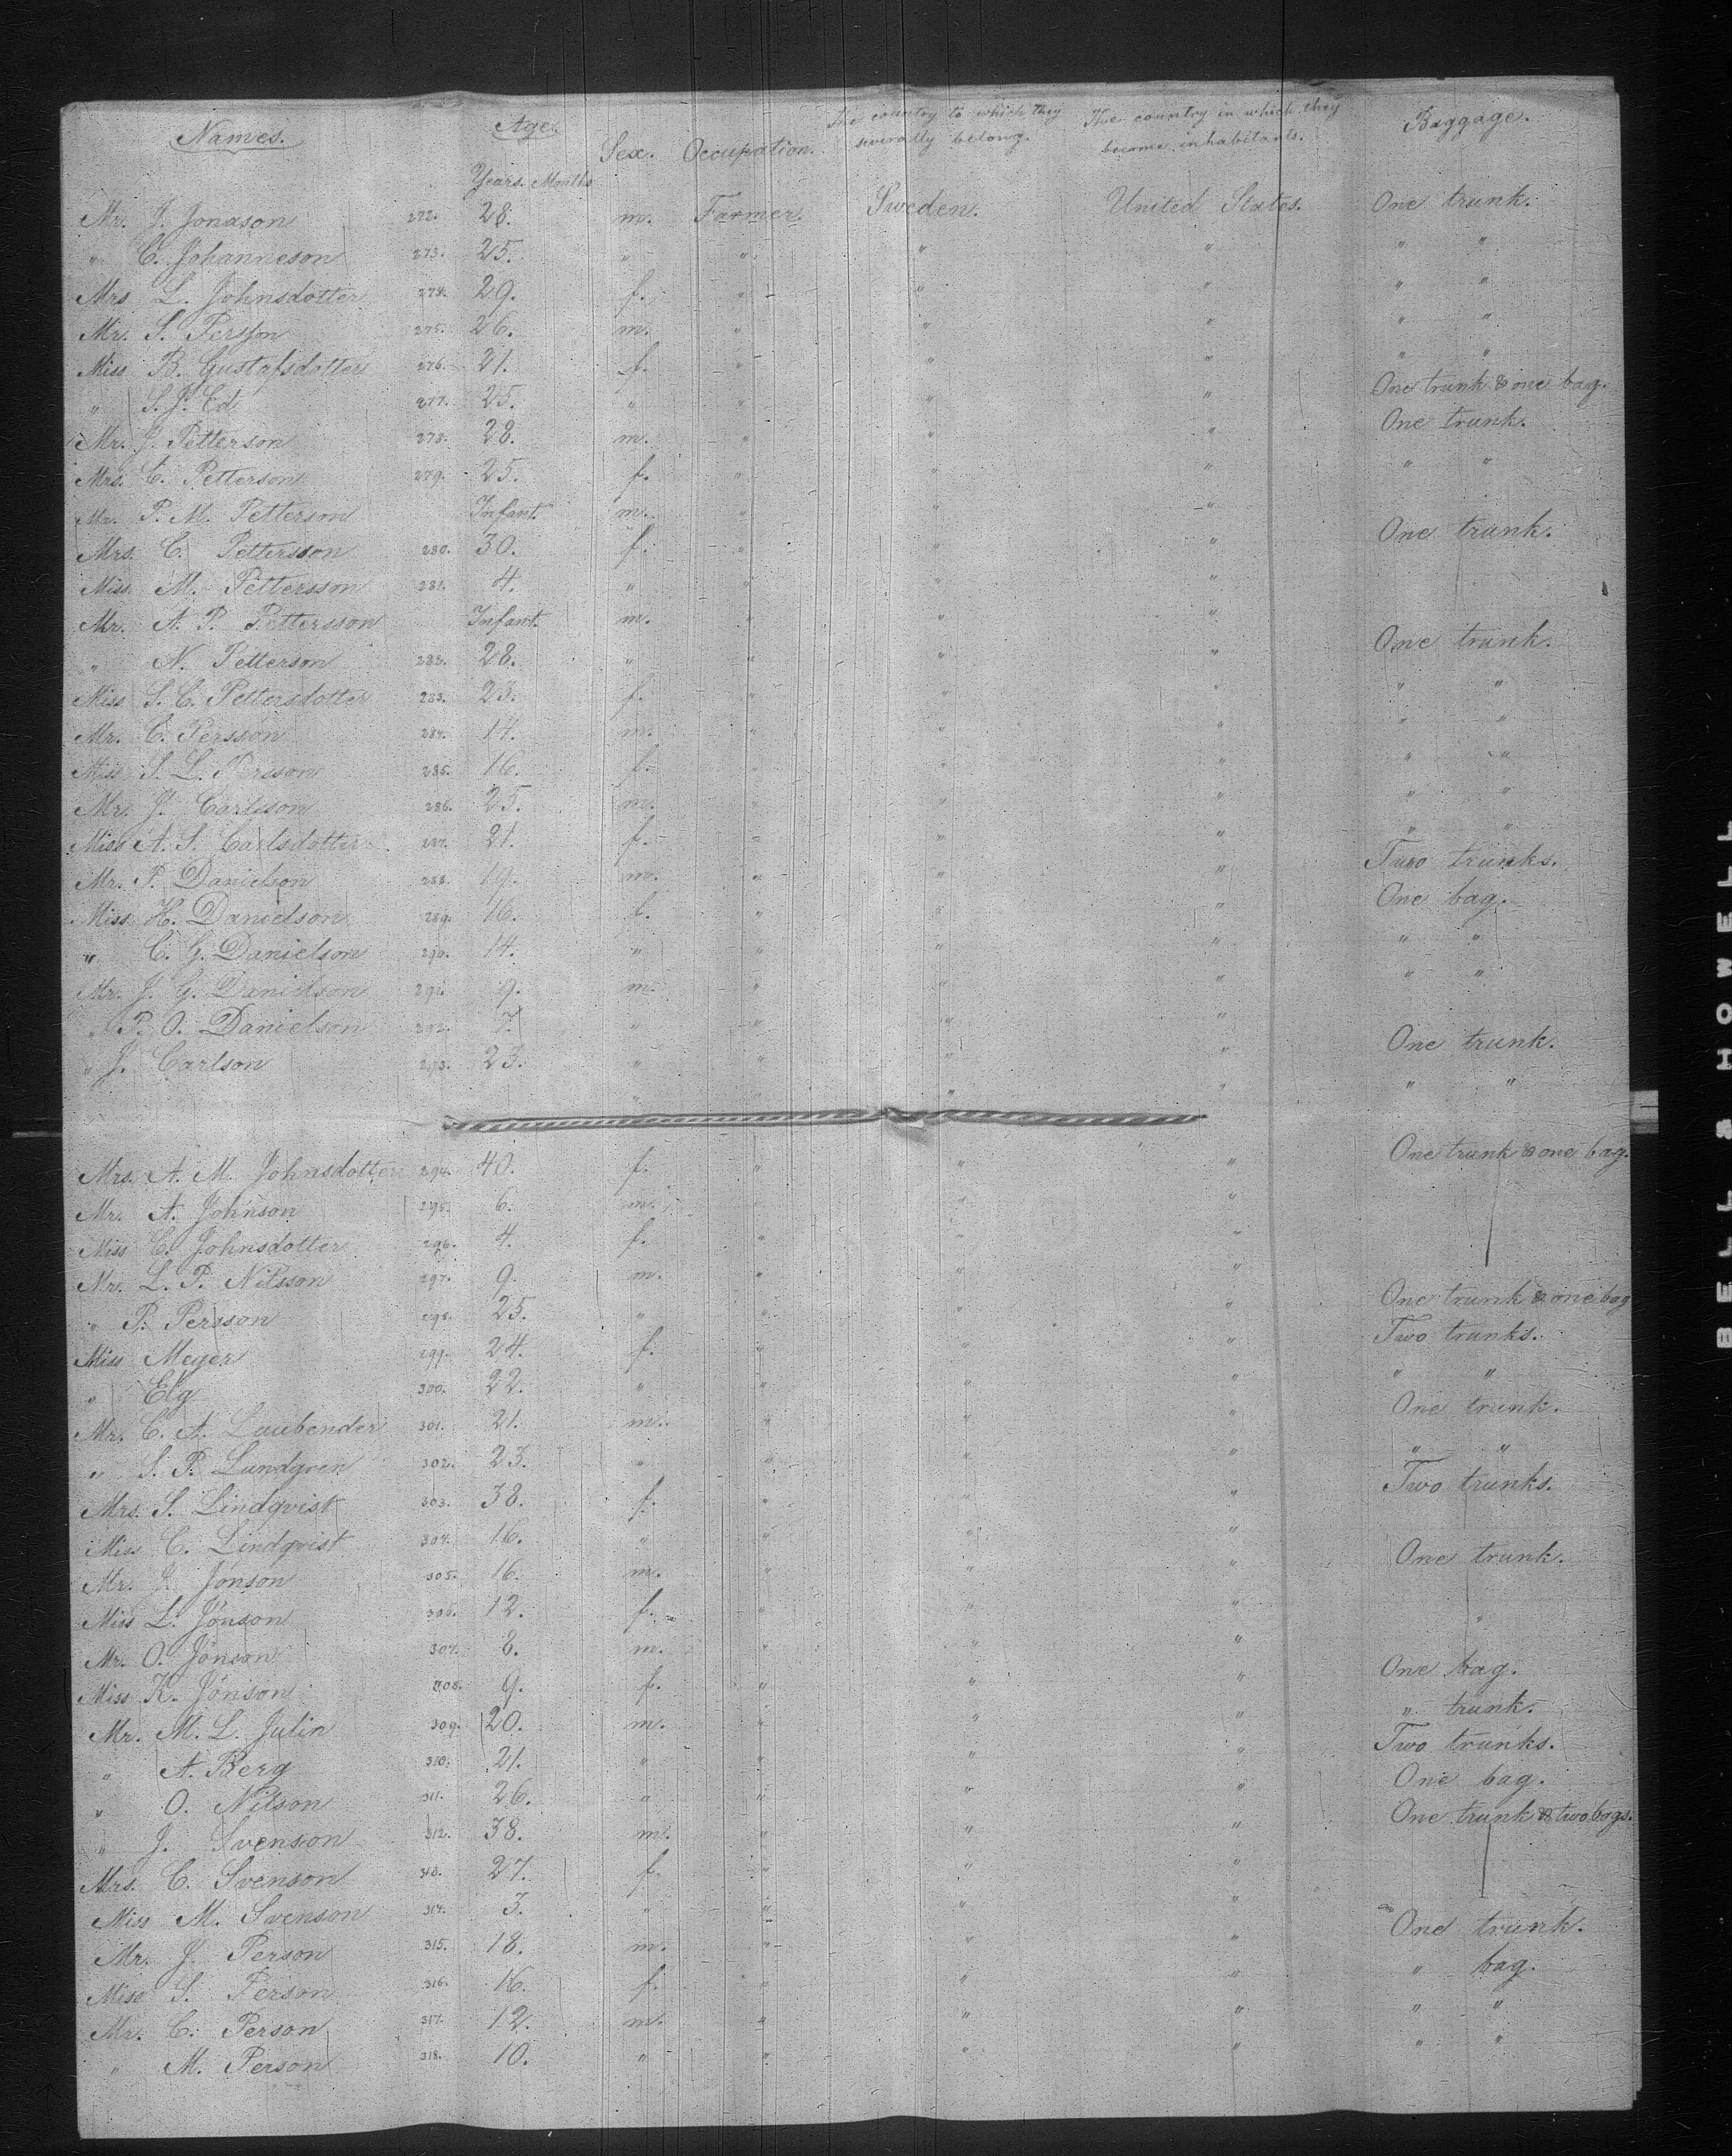 Names. Age. Sex. Occupation. The country to which they severally belong. The country in which they become inhabitants. Baggage.
Years. Months
Mr. J. Jonason 272. 28. m. Farmer. Sweden. United States. One trunk.
" C. Johanneson 273. 25. " " " " " "
Mrs L. Johnsdotter 274. 29. f. " " " " "
Mr. S. Persson 275. 26. m. " " " " "
Miss B. Gustafsdotter 276. 21. f. " " " " "
" S. J. Ed 277. 25. " " " " One trunk & one bag.
Mr. J. Petterson 278. 28. m. " " " One trunk.
Mrs. C. Petterson 279. 25. f. " " " " "
Mr. P. M. Petterson Infant. m. " " "
Mrs. C. Pettersson 280. 30. f. " " " One trunk.
Miss. M. Pettersson 281. 4. " " " "
Mr. A. P. Pettersson Infant. m. " " "
" N. Petterson 282. 28. " " " " One trunk.
Miss S. C. Pettersdotter 283. 23. f. " " " " "
Mr. C. Persson 284. 14. m. " " " " "
Miss S. L. Persson 285. 16. f. " " " " "
Mr. J. Carlsson 286. 25. m. " " " " "
Miss A. S. Carlsdotter 287. 21. f. " " " " "
Mr. P. Danielson 288. 19. m. " " " Two trunks.
Miss H. Danielson 289. 16. f. " " " One bag.
" C. G. Danielson 290. 14. " " " " " "
Mr. J. G. Danielson 291. 9. m. " " " " "
" P. O. Danielson 292. 7. " " " "
" J. Carlson 293. 23. " " " " One trunk.
" " " " " "
Mrs. A. M. Johnsdotter 294. 40. f. " " " One trunk & one bag.
Mr. A. Johnson 295. 6. m. " " "
Miss C. Johnsdotter 296. 4. f. " " "
Mr. L. P. Nilsson 297. 9. m. " " "
" P. Persson 298. 25. " " " " One trunk & one bag
Miss Meyer 299. 24. f. " " " Two trunks.
" Elg 300. 22. " " " " " "
Mr. C. A. Laubender 301. 21. m. " " " One trunk.
" S. P. Lundgren 302. 23. " " " " " "
Mrs. S. Lindqvist 303. 38. f. " " " Two trunks.
Miss C. Lindqvist 304. 16. " " " "
Mr. J. Jönson 305. 16. m. " " " One trunk.
Miss L. Jönson 306. 12. f. " " "
Mr. O. Jönson 307. 8. m. " " " "
Miss K. Jönson 308. 9. f. " " " One bag.
Mr. M. L. Julin 309. 20. m. " " " " trunk.
" A. Berg 310. 21. " " " " Two trunks.
" O. Nilson 311. 26. " " " " One bag.
" J. Svenson 312. 38. m. " " " One trunk & two bags.
Mrs. C. Svenson 313. 27. f. " " "
Miss M. Svenson 314. 3. " " " "
Mr. J. Person 315. 18. m. " " " One trunk.
Miss S. Person 316. 16. f. " " " " bag.
Mr. C. Person 317. 12. m. " " " " "
" M. Person 318. 10. " " " " " "
BELL & HOWELL